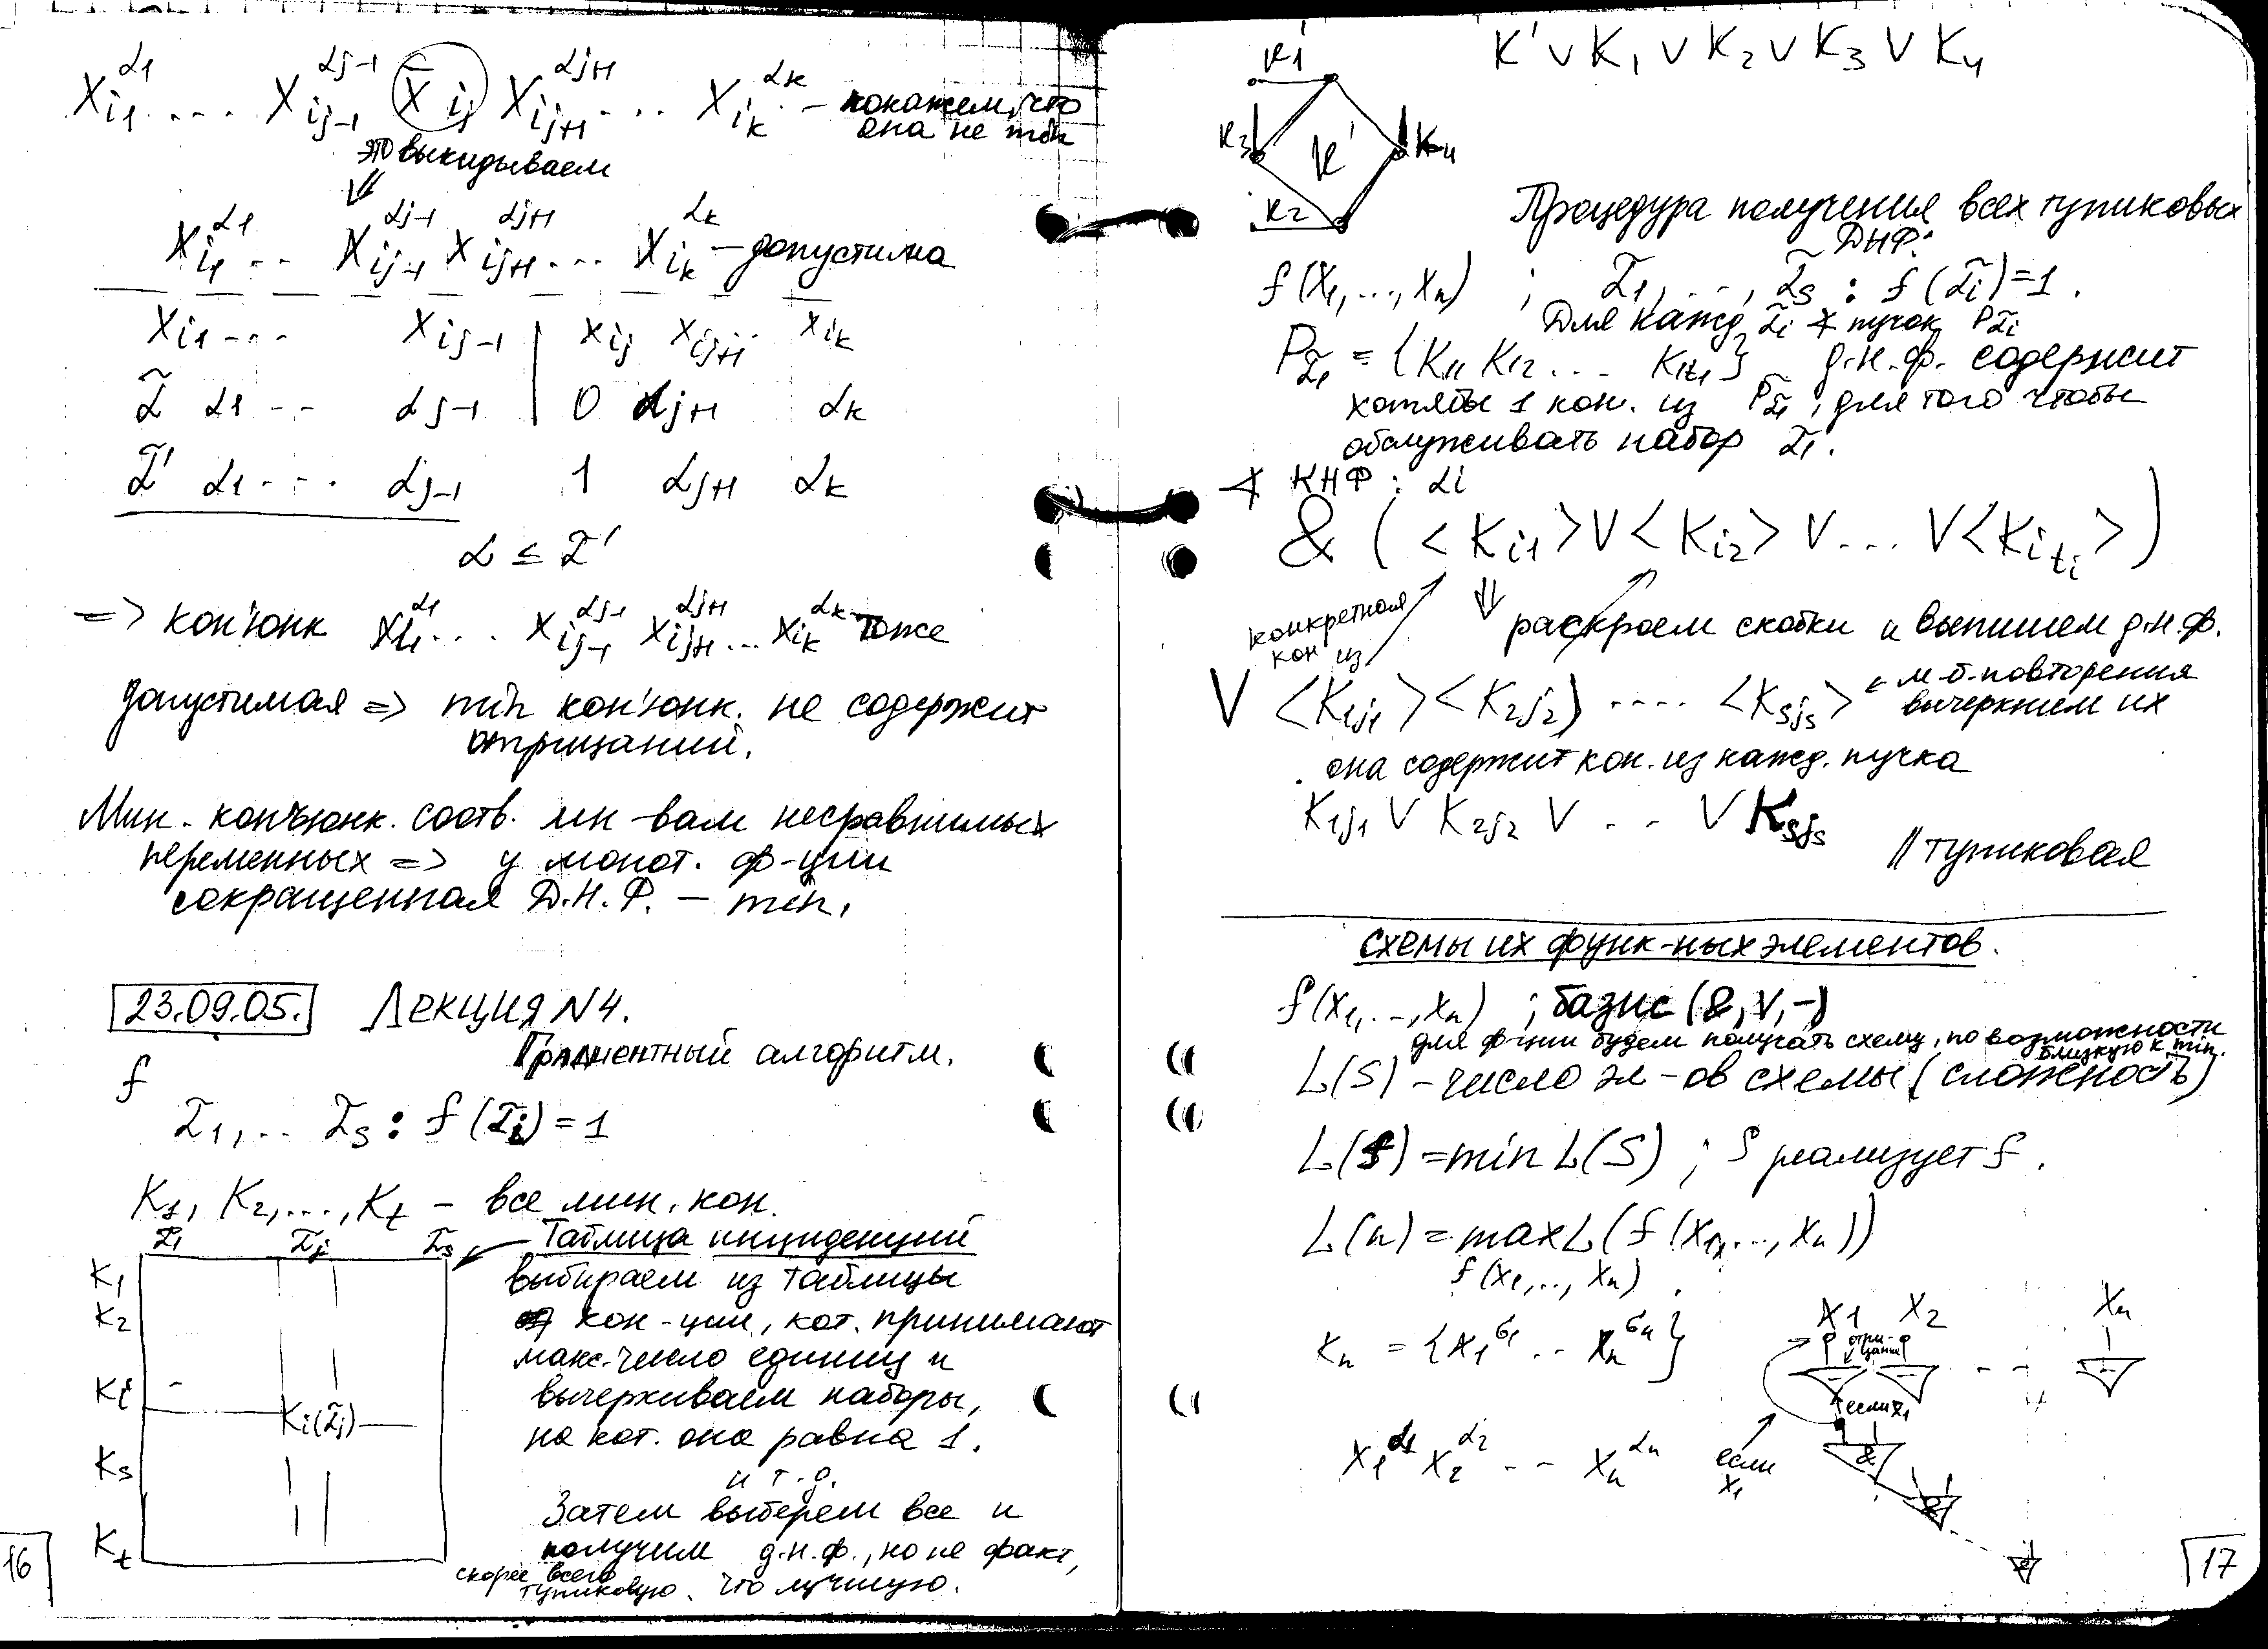 x_{i1}^{α1} .... x_{ij-1}^{αj-1} x̄_{ij} x_{ij+1}^{αj+1} ... x_{ik}^{αk} – покажем, что
она не min
это выкидываем
⇓
x_{i1}^{α1} .. x_{ij-1}^{αj-1} x_{ij+1}^{αj+1} ... x_{ik}^{αk} – допустима
x_{i1} ... x_{ij-1} | x_{ij} x_{ij+1} .. x_{ik}
α̃ α1 .. αj-1 | 0 αj+1 αk
α̃' α1 ... αj-1 1 αj+1 αk
α ≤ α̃'
=> кон'юнк x_{i1}^{α1} ... x_{ij-1}^{αj-1} x_{ij+1}^{αj+1} ... x_{ik}^{αk} тоже
допустимая => min кон'юнк. не содержит
отрицаний.
Мин. конъюнк. соотв. мн-вам несравнимых
переменных => у монот. ф-ции
сокращенная Д.Н.Ф. – min.
23.09.05. Лекция N4.
Градиентный алгоритм.
f
α̃1, .. α̃s : f(α̃i) = 1
K1, K2, ..., Kt – все мин. кон.
α̃1 α̃j α̃s ← Таблица инциденций
K1
K2
Ki
Ki(α̃j)
Ks
Kt
выбираем из таблицы
кон-ции, кот. принимают
макс. число единиц и
вычеркиваем наборы,
на кот. она равна 1.
и т.д.
Затем выберем все и
получим д.н.ф., но не факт,
скорее всего
тупиковую. что лучшую.
16
K' ∨ K1 ∨ K2 ∨ K3 ∨ K4
K1
K3 K' K4
K2
Процедура получения всех тупиковых
ДНФ:
f(x1, ..., xn) ; α̃1, ..., α̃s : f(α̃i) = 1.
Для кажд. α̃i ∢ пучок Pα̃i
Pα̃1 = {K11 K12 ... K1t1} д.н.ф. содержит
хотябы 1 кон. из Pα̃1, для того чтобы
обслуживать набор α̃1.
∢ КНФ : αi
& ( <Ki1> ∨ <Ki2> ∨ ... ∨ <Kiti> )
конкретная
кон из
⇓ раскроем скобки и выпишем д.н.ф.
∨ <K1j1> <K2j2> .... <Ksjs> ← м.б. повторения
вычеркнем их
она содержит кон. из кажд. пучка
K1j1 ∨ K2j2 ∨ .. ∨ Ksjs
// тупиковая
схемы их функ-ных элементов.
f(x1, .., xn) ; базис (&, ∨, –)
для ф-ции будем получать схему, по возможности
близкую к min.
L(S) – число эл-ов схемы (сложность)
L(f) = min L(S) ; S реализует f.
L(n) = max L(f(x1, ..., xn))
f(x1, .., xn)
Kn = {x1^{σ1} .. xn^{σn}}
x1 x2 xn
отри-
цания
если x̄1
x1^{α1} x2^{α2} .. xn^{αn}
если
x1
&
&
&
17